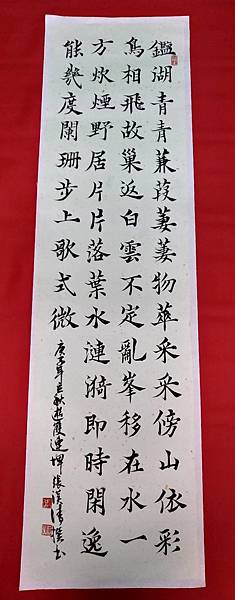 鑑湖青青蒹葭萋萋物華采采傍山依彩
鳥相飛故巢返白雲不定亂峯移在水一
方炊煙野居片片落葉水漣漪即時閑逸
能幾度闌珊步上歌式微
庚子年立秋遊雙連埤 張漢清 書